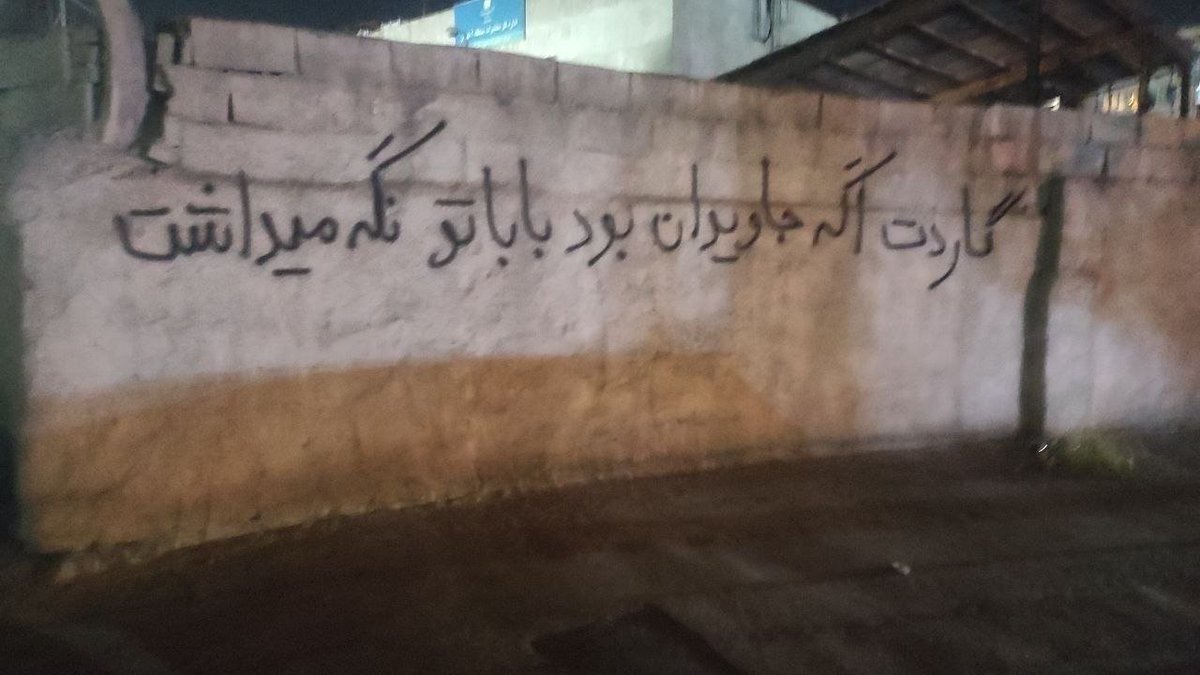 گاردت اگه جاویدان بود باباتو نگه میداشت